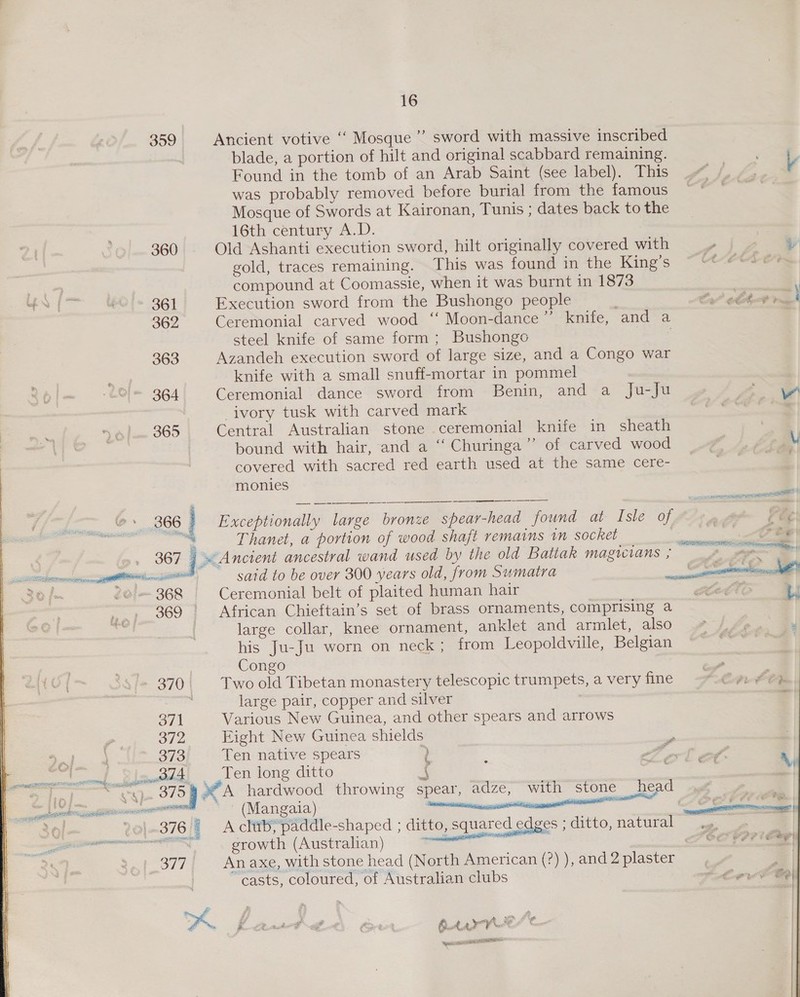 16
359 Ancient votive “ Mosque ” sword with massive inscribed
blade, a portion of hilt and original scabbard remaining.
Found in the tomb of an Arab Saint (see label). This
was probably removed before burial from the famous
Mosque of Swords at Kaironan, Tunis ; dates back to the
16th century A.D.
360 Old Ashanti execution sword, hilt originally covered with
gold, traces remaining. This was found in the King's
compound at Coomassie, when it was burnt in 1873
361 Execution sword from the Bushongo people
362 Ceremonial carved wood “ Moon-dance ” knife, and a
steel knife of same form ; Bushongo
363 Azandeh execution sword of large size, and a Congo war
knife with a small snuff-mortar in pommel
364 Ceremonial dance sword from Benin, and a Ju-Ju
ivory tusk with carved mark
365 Central Australian stone ceremonial knife in sheath
bound with hair, and a “ Churinga ” of carved wood
covered with sacred red earth used at the same cere-
monies
366 Exceptionally large bronze spear-head found at Isle of
Thanet, a portion of wood shaft remains in socket
367 Ancient ancestral wand used by the old Battak magicians ;
said to be over 300 years old, from Sumatra
368 Ceremonial belt of plaited human hair
369 African Chieftain's set of brass ornaments, comprising a
large collar, knee ornament, anklet and armlet, also
his Ju-Ju worn on neck ; from Leopoldville, Belgian
Congo
370 Two old Tibetan monastery telescopic trumpets, a very fine
large pair, copper and silver
371 Various New Guinea, and other spears and arrows
372 Eight New Guinea shields
373 Ten native spears
374 Ten long ditto
375 A hardwood throwing spear, adze, with stone head
(Mangaia)
376 A club, paddle-shaped ; ditto, squared edges ; ditto, natural
growth (Australian)
377 An axe, with stone head (North American (?) ), and 2 plaster
casts, coloured, of Australian clubs